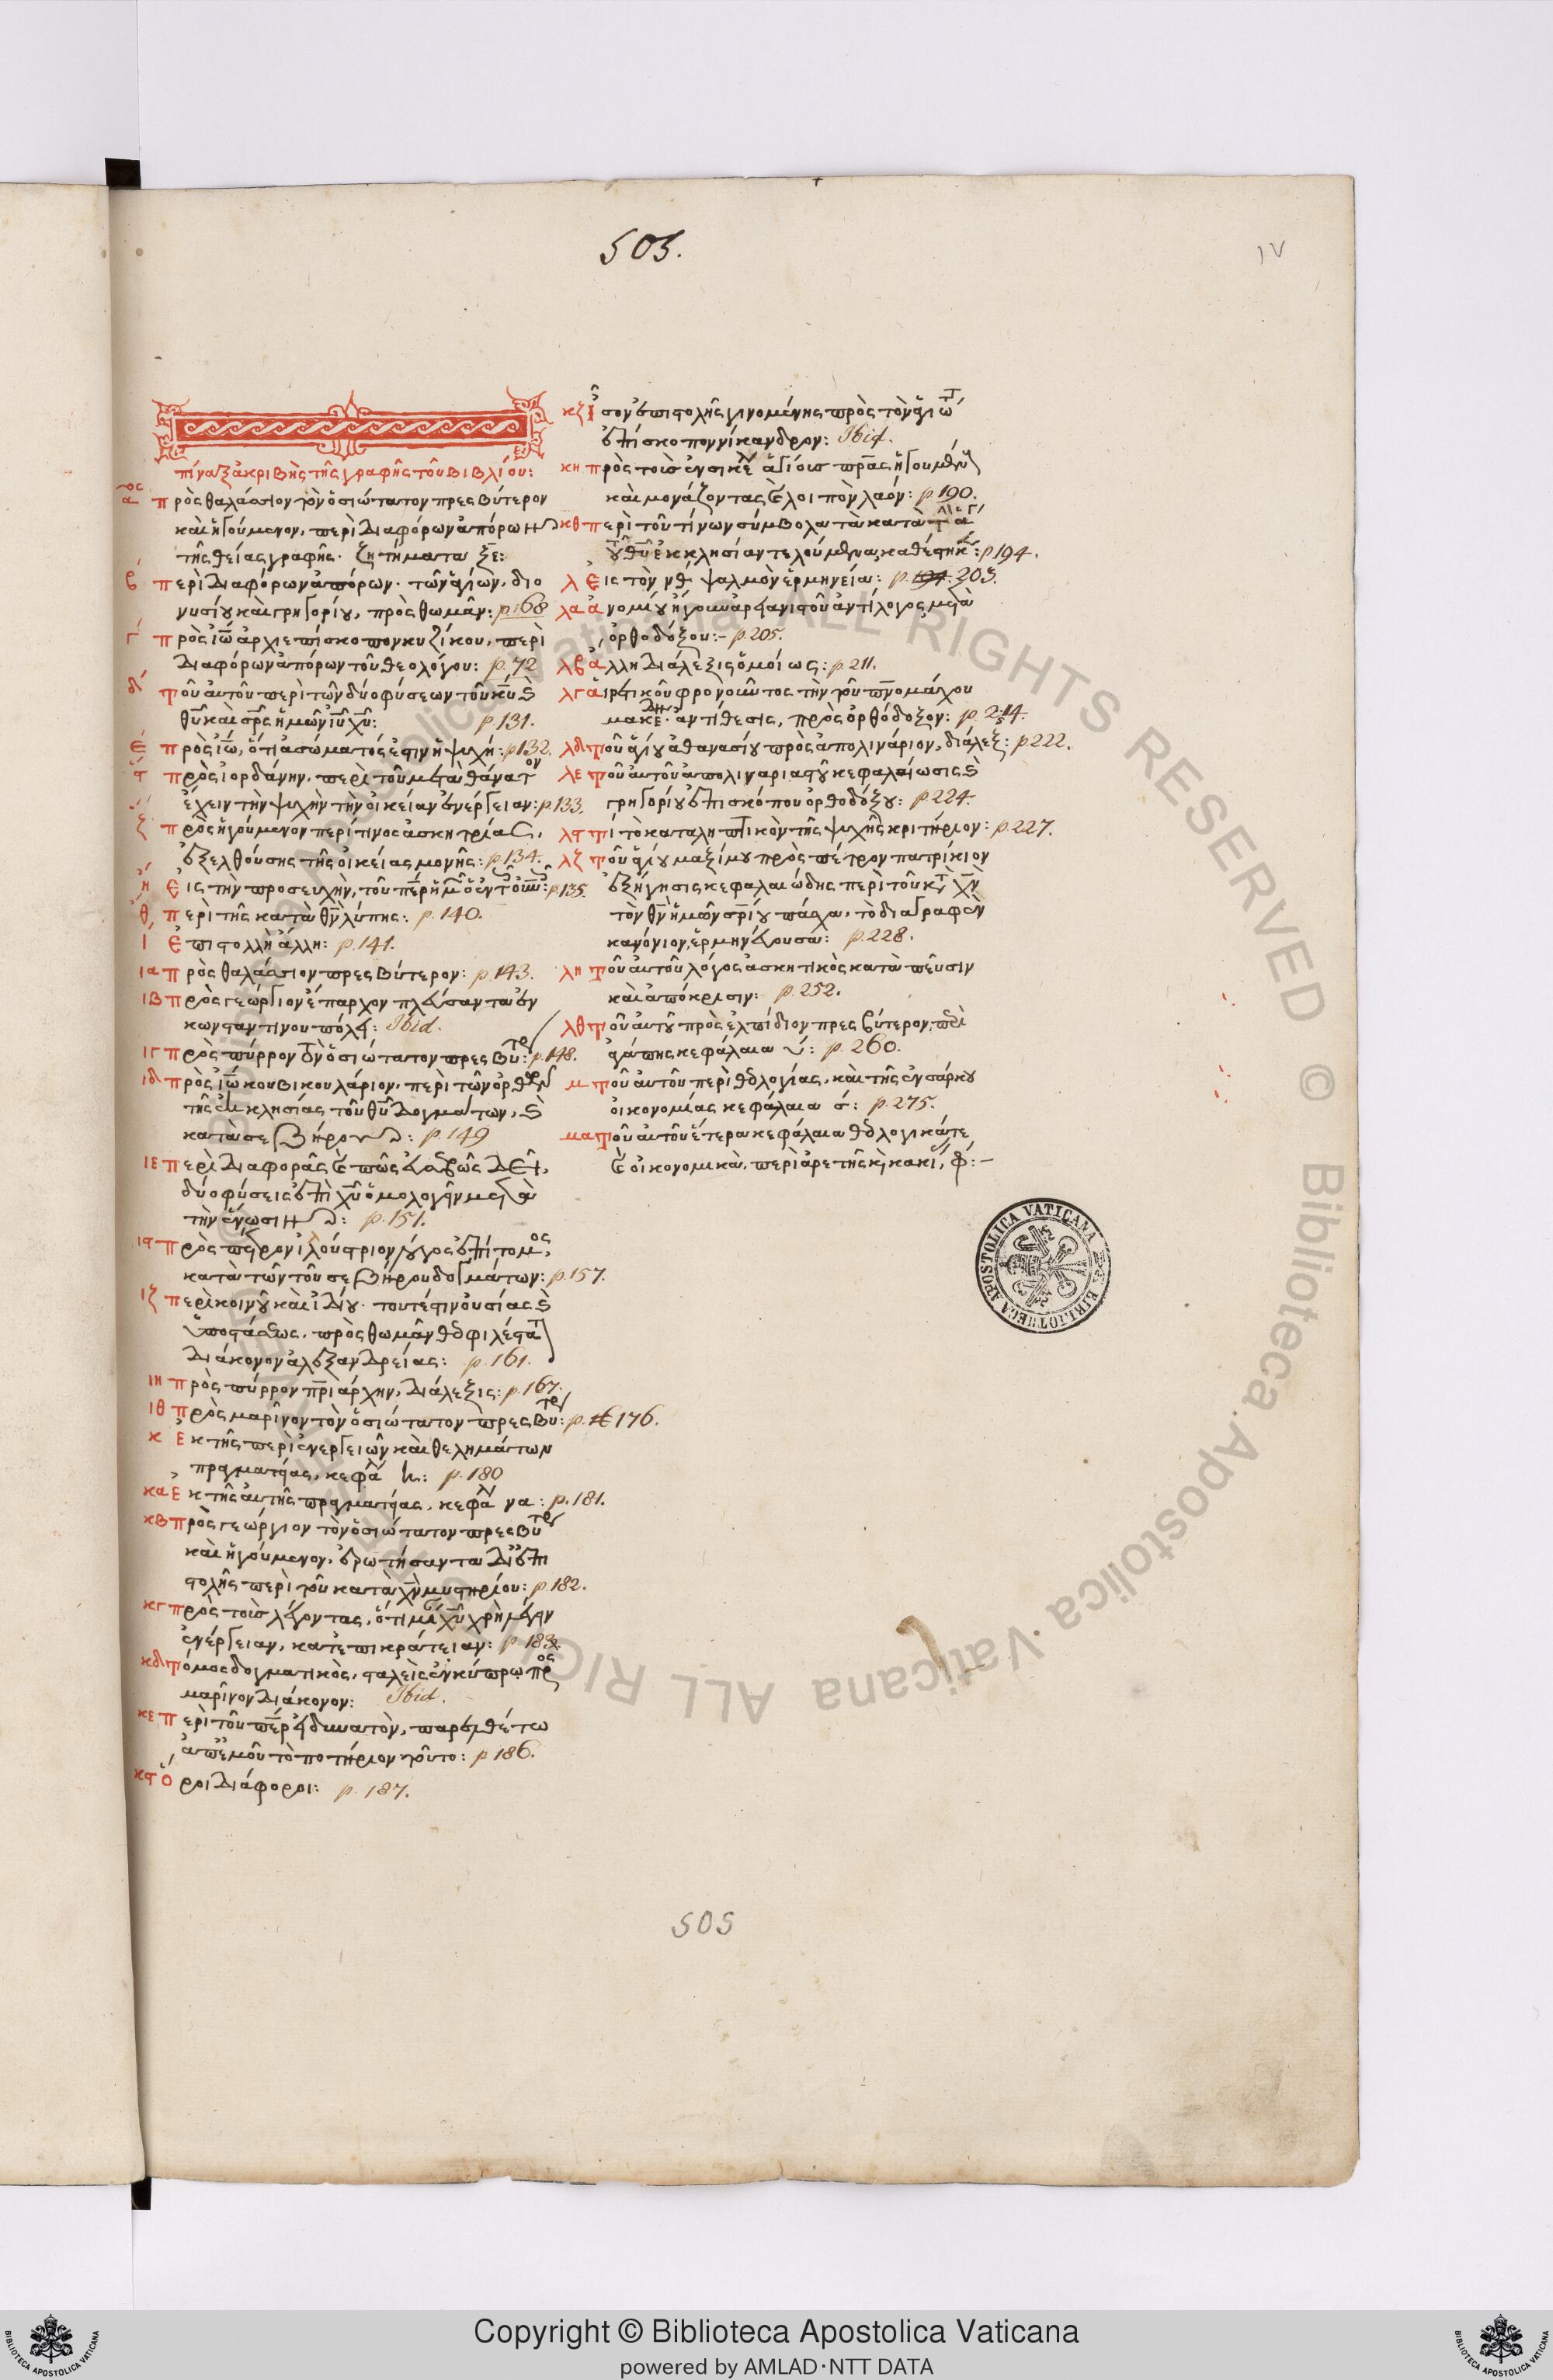 505.
IV
πίναξ ἀκριβὴς τῆς γραφῆς τοῦ βιβλίου:
α^ος πρὸς θαλάσσιον τὸν ὁσιώτατον πρεσβύτερον
καὶ ἡγούμενον, περὶ διαφόρων ἀπόρων
τῆς θείας γραφῆς. ζητήματα ξε:
β περὶ διαφόρων ἀπόρων. τῶν ἁγίων, διο
νυσίου καὶ γρηγορίου, πρὸς θωμᾶν: p. 68
γ πρὸς ἰω ἀρχιεπίσκοπον κυζίκου, περὶ
διαφόρων ἀπόρων τοῦ θεολόγου: p. 72
δ τοῦ αὐτοῦ περὶ τῶν δύο φύσεων τοῦ κυ καὶ
θυ καὶ σρς ἡμῶν ιυ χυ: p. 131.
ε πρὸς ἰω, ὅτι ἀσώματός ἐστιν ἡ ψυχή: p. 132.
ϛ πρὸς ἰορδάνην, περὶ τοῦ μετὰ θάνατον
ἔχειν τὴν ψυχὴν τὴν οἰκείαν ἐνέργειαν: p. 133.
ζ πρὸς ἡγούμενον περί τινος ἀσκητρίας,
ἐξελθούσης τῆς οἰκείας μονῆς: p. 134.
η εἰς τὴν προσευχὴν, τοῦ περ ἡμ ὁ ἐν τ οὐν: p. 135
θ περὶ τῆς κατὰ θν λύπης: p. 140.
ι ἐπιστολὴ ἄλλη: p. 141.
ια πρὸς θαλάσσιον πρεσβύτερον: p. 143.
ιβ πρὸς γεώργιον ἔπαρχον πλεύσαντα ἐν
κωνσταντινουπόλει: Ibid.
ιγ πρὸς πύρρον τὸν ὁσιώτατον πρεσβυτρ: p. 148.
ιδ πρὸς ἰω κουβικουλάριον, περὶ τῶν ὀρθῶν
τῆς ἐκκλησίας τοῦ θυ δογμάτων, καὶ
κατὰ σεβήρου: p. 149
ιε περὶ διαφορᾶς καὶ πῶς εὐσεβῶς δεῖ,
δύο φύσεις ἐπὶ χυ ὁμολογεῖν μετὰ
τὴν ἕνωσιν: p. 151.
ιϛ πρὸς πέτρον ἰλούστριον λόγος ἐπίτομος,
κατὰ τῶν τοῦ σεβήρου δογμάτων: p. 157.
ιζ περὶ κοινοῦ καὶ ἰδίου. τουτέστιν οὐσίας καὶ
ὑποστάσεως, πρὸς θωμᾶν θεοφιλέστατ
διάκονον ἀλεξανδρείας: p. 161.
ιη πρὸς πύρρον πριάρχην, διάλεξις: p. 167.
ιθ πρὸς μαρῖνον τὸν ὁσιώτατον πρεσβυτρ: p. 176.
κ ἐκ τῆς περὶ ἐνεργειῶν καὶ θελημάτων
πραγματείας, κεφα ν: p. 180
κα ἐκ τῆς αὐτῆς πραγματείας, κεφα να: p. 181.
κβ πρὸς γεώργιον τὸν ὁσιώτατον πρεσβυτρ
καὶ ἡγούμενον, ἐρωτήσαντα δι' ἐπι
στολῆς περὶ τοῦ κατὰ χν μυστηρίου: p. 182.
κγ πρὸς τοὺς λέγοντας, ὅτι μίαν χυ χρὴ λέγειν
ἐνέργειαν, κατ' ἐπικράτειαν: p. 183.
κδ τόμος δογματικὸς, σταλεὶς ἐν κύπρῳ πρὸς
μαρῖνον διάκονον: Ibid.
κε περὶ τοῦ περ εἰ δυνατὸν, παρελθέτω
ἀπ' ἐμοῦ τὸ ποτήριον τοῦτο: p. 186.
κϛ ὅροι διάφοροι: p. 187.
κζ ἴσον ἐπιστολῆς γινομένης πρὸς τὸν ἁγιώτ
ἐπίσκοπον νίκανδρον: Ibid.
κη πρὸς τοὺς ἐν σικελ ἁγίους πρας ἡγουμένους
καὶ μονάζοντας καὶ λοιπὸν λαόν: p. 190.
κθ περὶ τοῦ τίνων σύμβολα τὰ κατὰ τ ἁγί
τοῦ θυ ἐκκλησίαν τελούμενα καθέστηκ: p. 194.
λ εἰς τὸν νθ ψαλμὸν ἑρμηνεία: p. 203.
λα ἀνομίου ἤγουν ἀρειανιστοῦ ἀντίλογος μετὰ
ὀρθοδόξου:- p. 205.
λβ ἄλλη διάλεξις ὁμοίως: p. 211.
λγ αἱρετικοῦ φρονοῦντος τὴν τοῦ πνομάχου
μακεδ. ἀντίθεσις, πρὸς ὀρθόδοξον: p. 214.
λδ τοῦ ἁγίου ἀθανασίου πρὸς ἀπολινάριον, διάλεξ: p. 222.
λε τοῦ αὐτοῦ ἀπολιναριαστοῦ κεφαλαίωσις καὶ
γρηγορίου ἐπισκόπου ὀρθοδόξου: p. 224.
λϛ τί τὸ καταληπτικὸν τῆς ψυχῆς κριτήριον: p. 227.
λζ τοῦ ἁγίου μαξίμου πρὸς πέτρον πατρίκιον
ἐξήγησις κεφαλαιώδης περὶ τοῦ κατ χν
τὸν θν ἡμῶν σρίου πάσχα, τὸ διαγραφὲν
κανόνιον, ἑρμηνεύουσα: p. 228.
λη τοῦ αὐτοῦ λόγος ἀσκητικὸς κατὰ πεῦσιν
καὶ ἀπόκρισιν: p. 252.
λθ τοῦ αὐτοῦ πρὸς ἐλπίδιον πρεσβύτερον, περὶ
ἀγάπης κεφάλαια υ: p. 260.
μ τοῦ αὐτοῦ περὶ θεολογίας, καὶ τῆς ἐνσάρκου
οἰκονομίας κεφάλαια σ: p. 275.
μα τοῦ αὐτοῦ ἕτερα κεφάλαια θεολογικά τε
καὶ οἰκονομικὰ, περὶ ἀρετῆς καὶ κακίας, φ:-
APOSTOLICA VATICANA BIBLIOTHECA
505
© Biblioteca Apostolica Vaticana ALL RIGHTS RESERVED
Copyright © Biblioteca Apostolica Vaticana
powered by AMLAD·NTT DATA
BIBLIOTECA APOSTOLICA VATICANA
BIBLIOTECA APOSTOLICA VATICANA